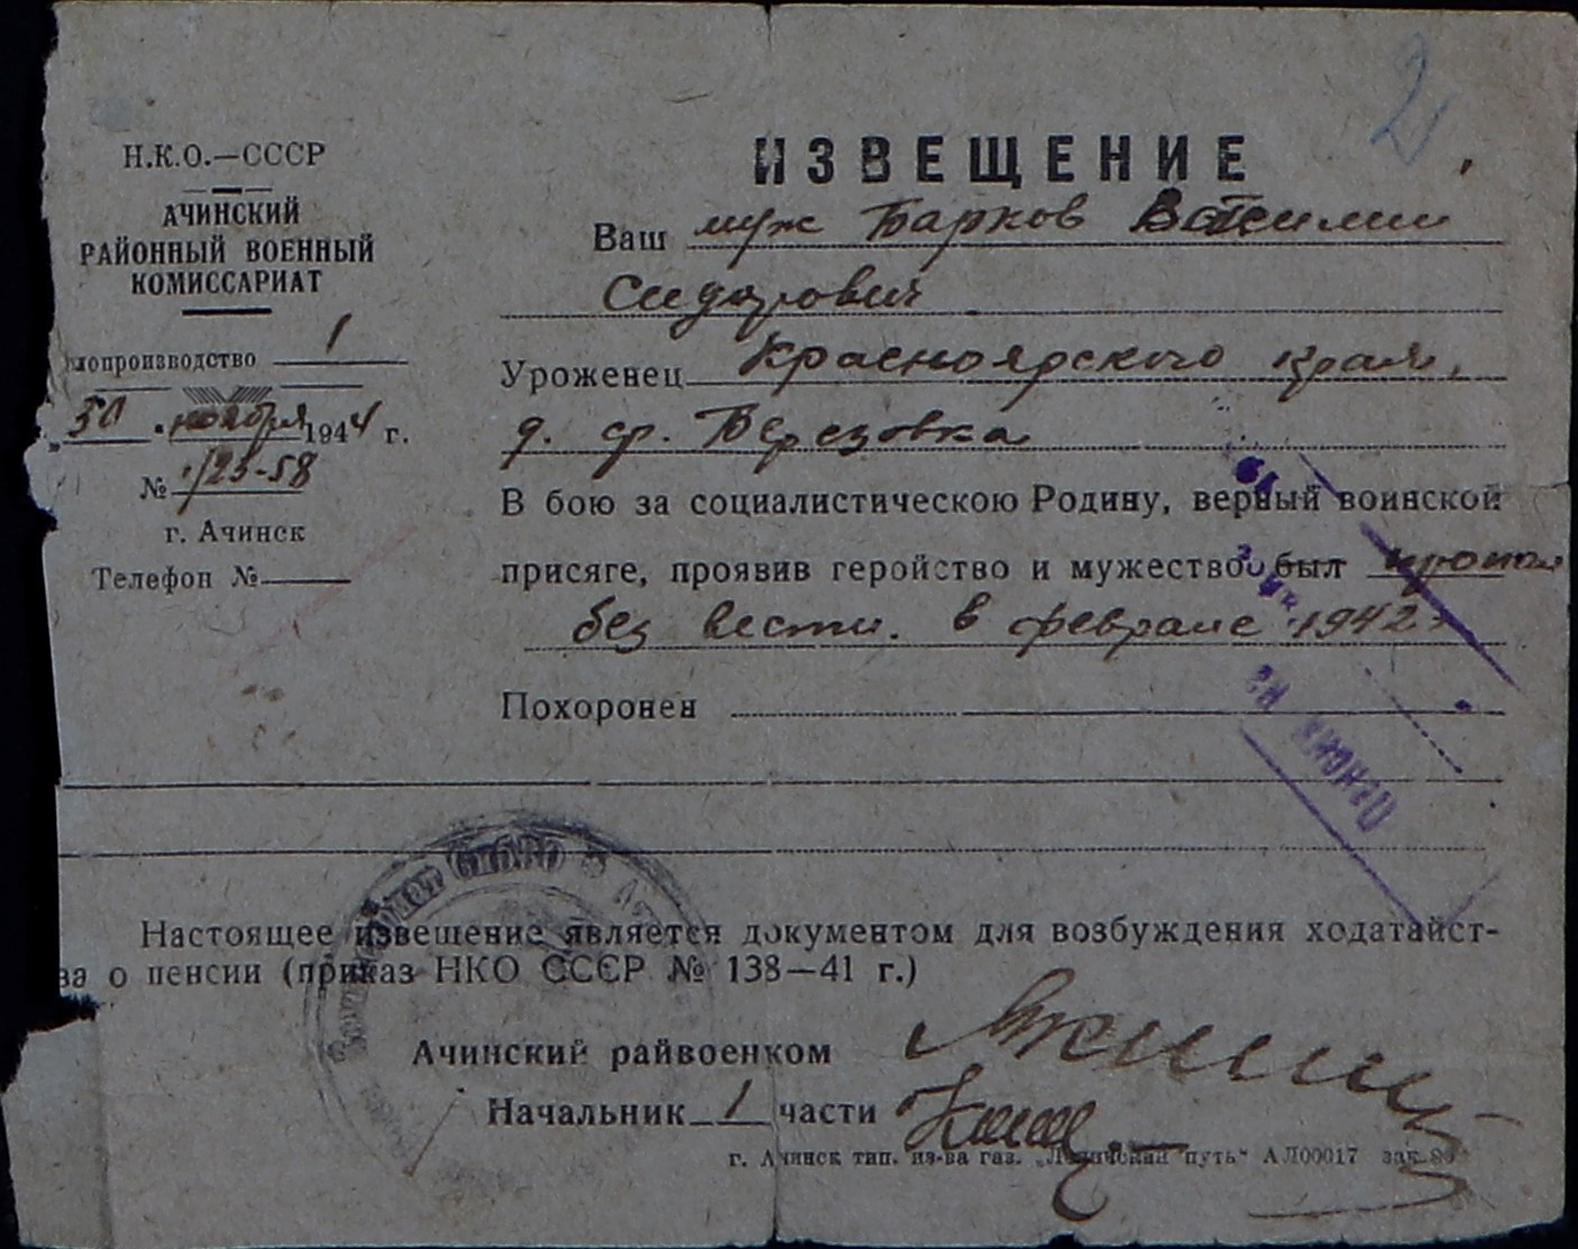 2
Н.К.О.—СССР
АЧИНСКИЙ
РАЙОННЫЙ ВОЕННЫЙ
КОМИССАРИАТ
лопроизводство 1
30 ноября 1944 г.
№ 1/23-58
г. Ачинск
Телефон №
ИЗВЕЩЕНИЕ
Ваш муж Барков
Сидорович
Уроженец Красноярского края,
д. ср. Березовка
В бою за социалистическою Родину, верный воинской
присяге, проявив геройство и мужество был пропал
без вести. в феврале 1942
Похоронен
Настоящее извещение является документом для возбуждения ходатайст-
ва о пенсии (приказ НКО СССР № 138—41 г.)
Ачинский райвоенком
Начальник 1 части
г. Ачинск тип. из-ва газ. „Ленинский путь“ АЛ00017 зак.